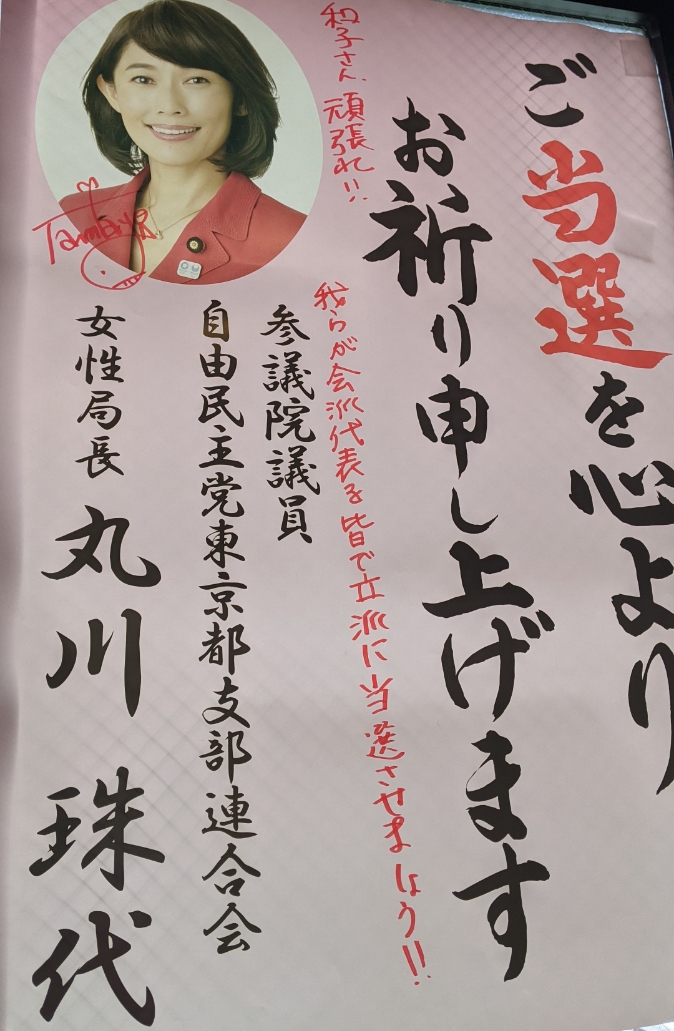 ご当選を心より
お祈り申し上げます
和子さん、頑張れ!!
我らが会派代表を皆で立派に当選させましょう!!
参議院議員
自由民主党東京都支部連合会
女性局長 丸川 珠代
Tamayo